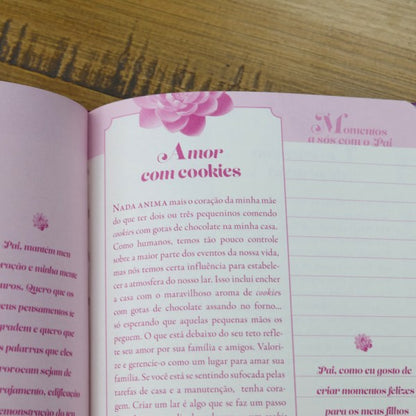 Pai, mantém meu
coração e minha mente
puros. Quero que os
meus pensamentos te
agradem e quero que
as palavras que eles
provocam sejam de
encorajamento, edificação
e demonstração do seu
Amor
com cookies
NADA ANIMA mais o coração da minha mãe
do que ter dois ou três pequeninos comendo
cookies com gotas de chocolate na minha casa.
Como humanos, temos tão pouco controle
sobre a maior parte dos eventos da nossa vida,
mas nós temos certa influência para estabele-
cer a atmosfera do nosso lar. Isso inclui encher
a casa com o maravilhoso aroma de cookies
com gotas de chocolate assando no forno...
só esperando que aquelas pequenas mãos os
peguem. O que está debaixo do seu teto refle-
te seu amor por sua família e amigos. Valori-
ze e gerencie-o como um lugar para amar sua
família. Se você está se sentindo sufocada pelas
tarefas de casa e a manutenção, tenha cora-
gem. Criar um lar é algo que se faz um passo
Momentos
a sós com o Pai
Pai, como eu gosto de
criar momentos felizes
para os meus filhos